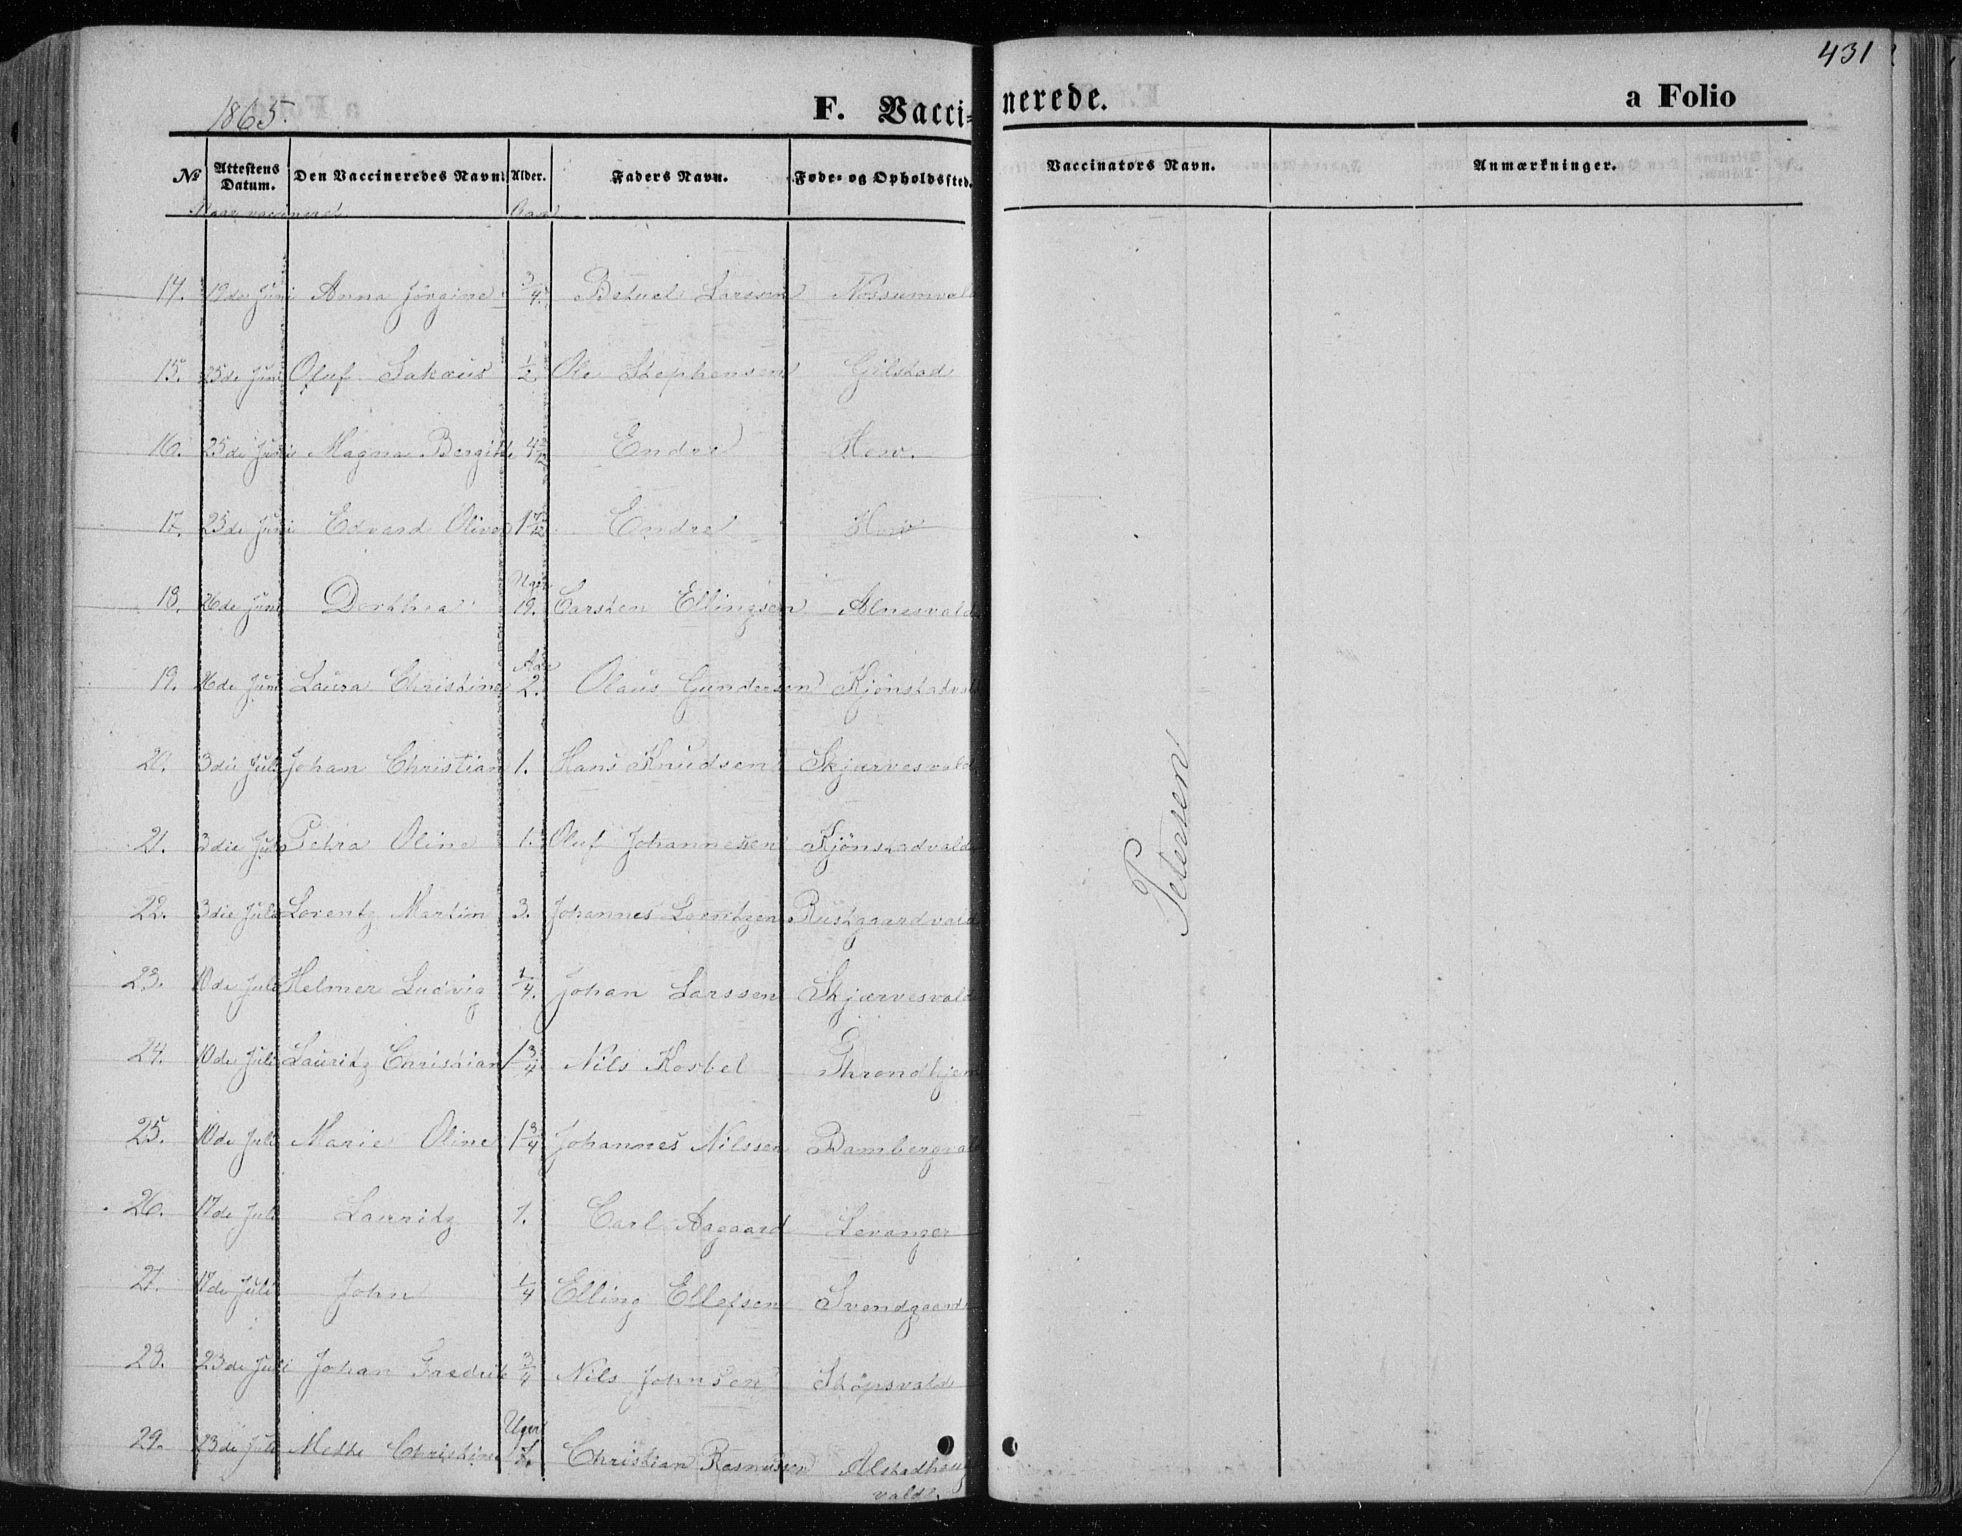 431
1865.
F. Vaccinerede.
a Folio
No Attestens Datum. Den Vaccineredes Navn. Alder. Faders Navn. Føde- og Opholdssted. Vaccinators Navn. Anmærkninger.
Naar vaccineret Aar
14. 19de Juni Anna Jörgine 3/4. Betuel Larssen Nossumvald
15. 25de Juni Oluf Sakæus 1/2 Ole Stephensen Gilstad
16. 25de Juni Magna Bergitte Endre How.
17. 25de Juni Edvard Oliver Endre How
18. 26de Juni Dorthea Uger 19. Carsten Ellingsen Alnesvald
19. 26de Juni Laura Christine Aar 2. Olaus Gundersen Kjönstadvald
20. 3die Juli Johan Christian 1. Hans Knudsen Skjærvesvald
21. 3die Juli Petra Oline 1. Oluf Johannesen Kjönstadvald
22. 3die Juli Lorentz Martin 3. Johannes Lorntzen Rustgaardvald
23. 10de Juli Helmer Ludvig 1/4. Johan Larssen Skjærvesvald
24. 10de Juli Lauritz Christian 1 3/4 Nils Kosbel Throndhjem
25. 10de Juli Marie Oline 1 3/4 Johannes Nilssen Bambergvald
26. 17de Juli Lauritz 1. Carl Aagaard Levanger
27. 17de Juli John 1/4 Elling Ellefsen Svendgaard
28. 23de Juli Johan Fredrik 3/4 Nils Johnsen Sköpsvald
29. 23de Juli Mette Christine Uger 7. Christian Rasmussen Alstadhoug
valde.
Petersen